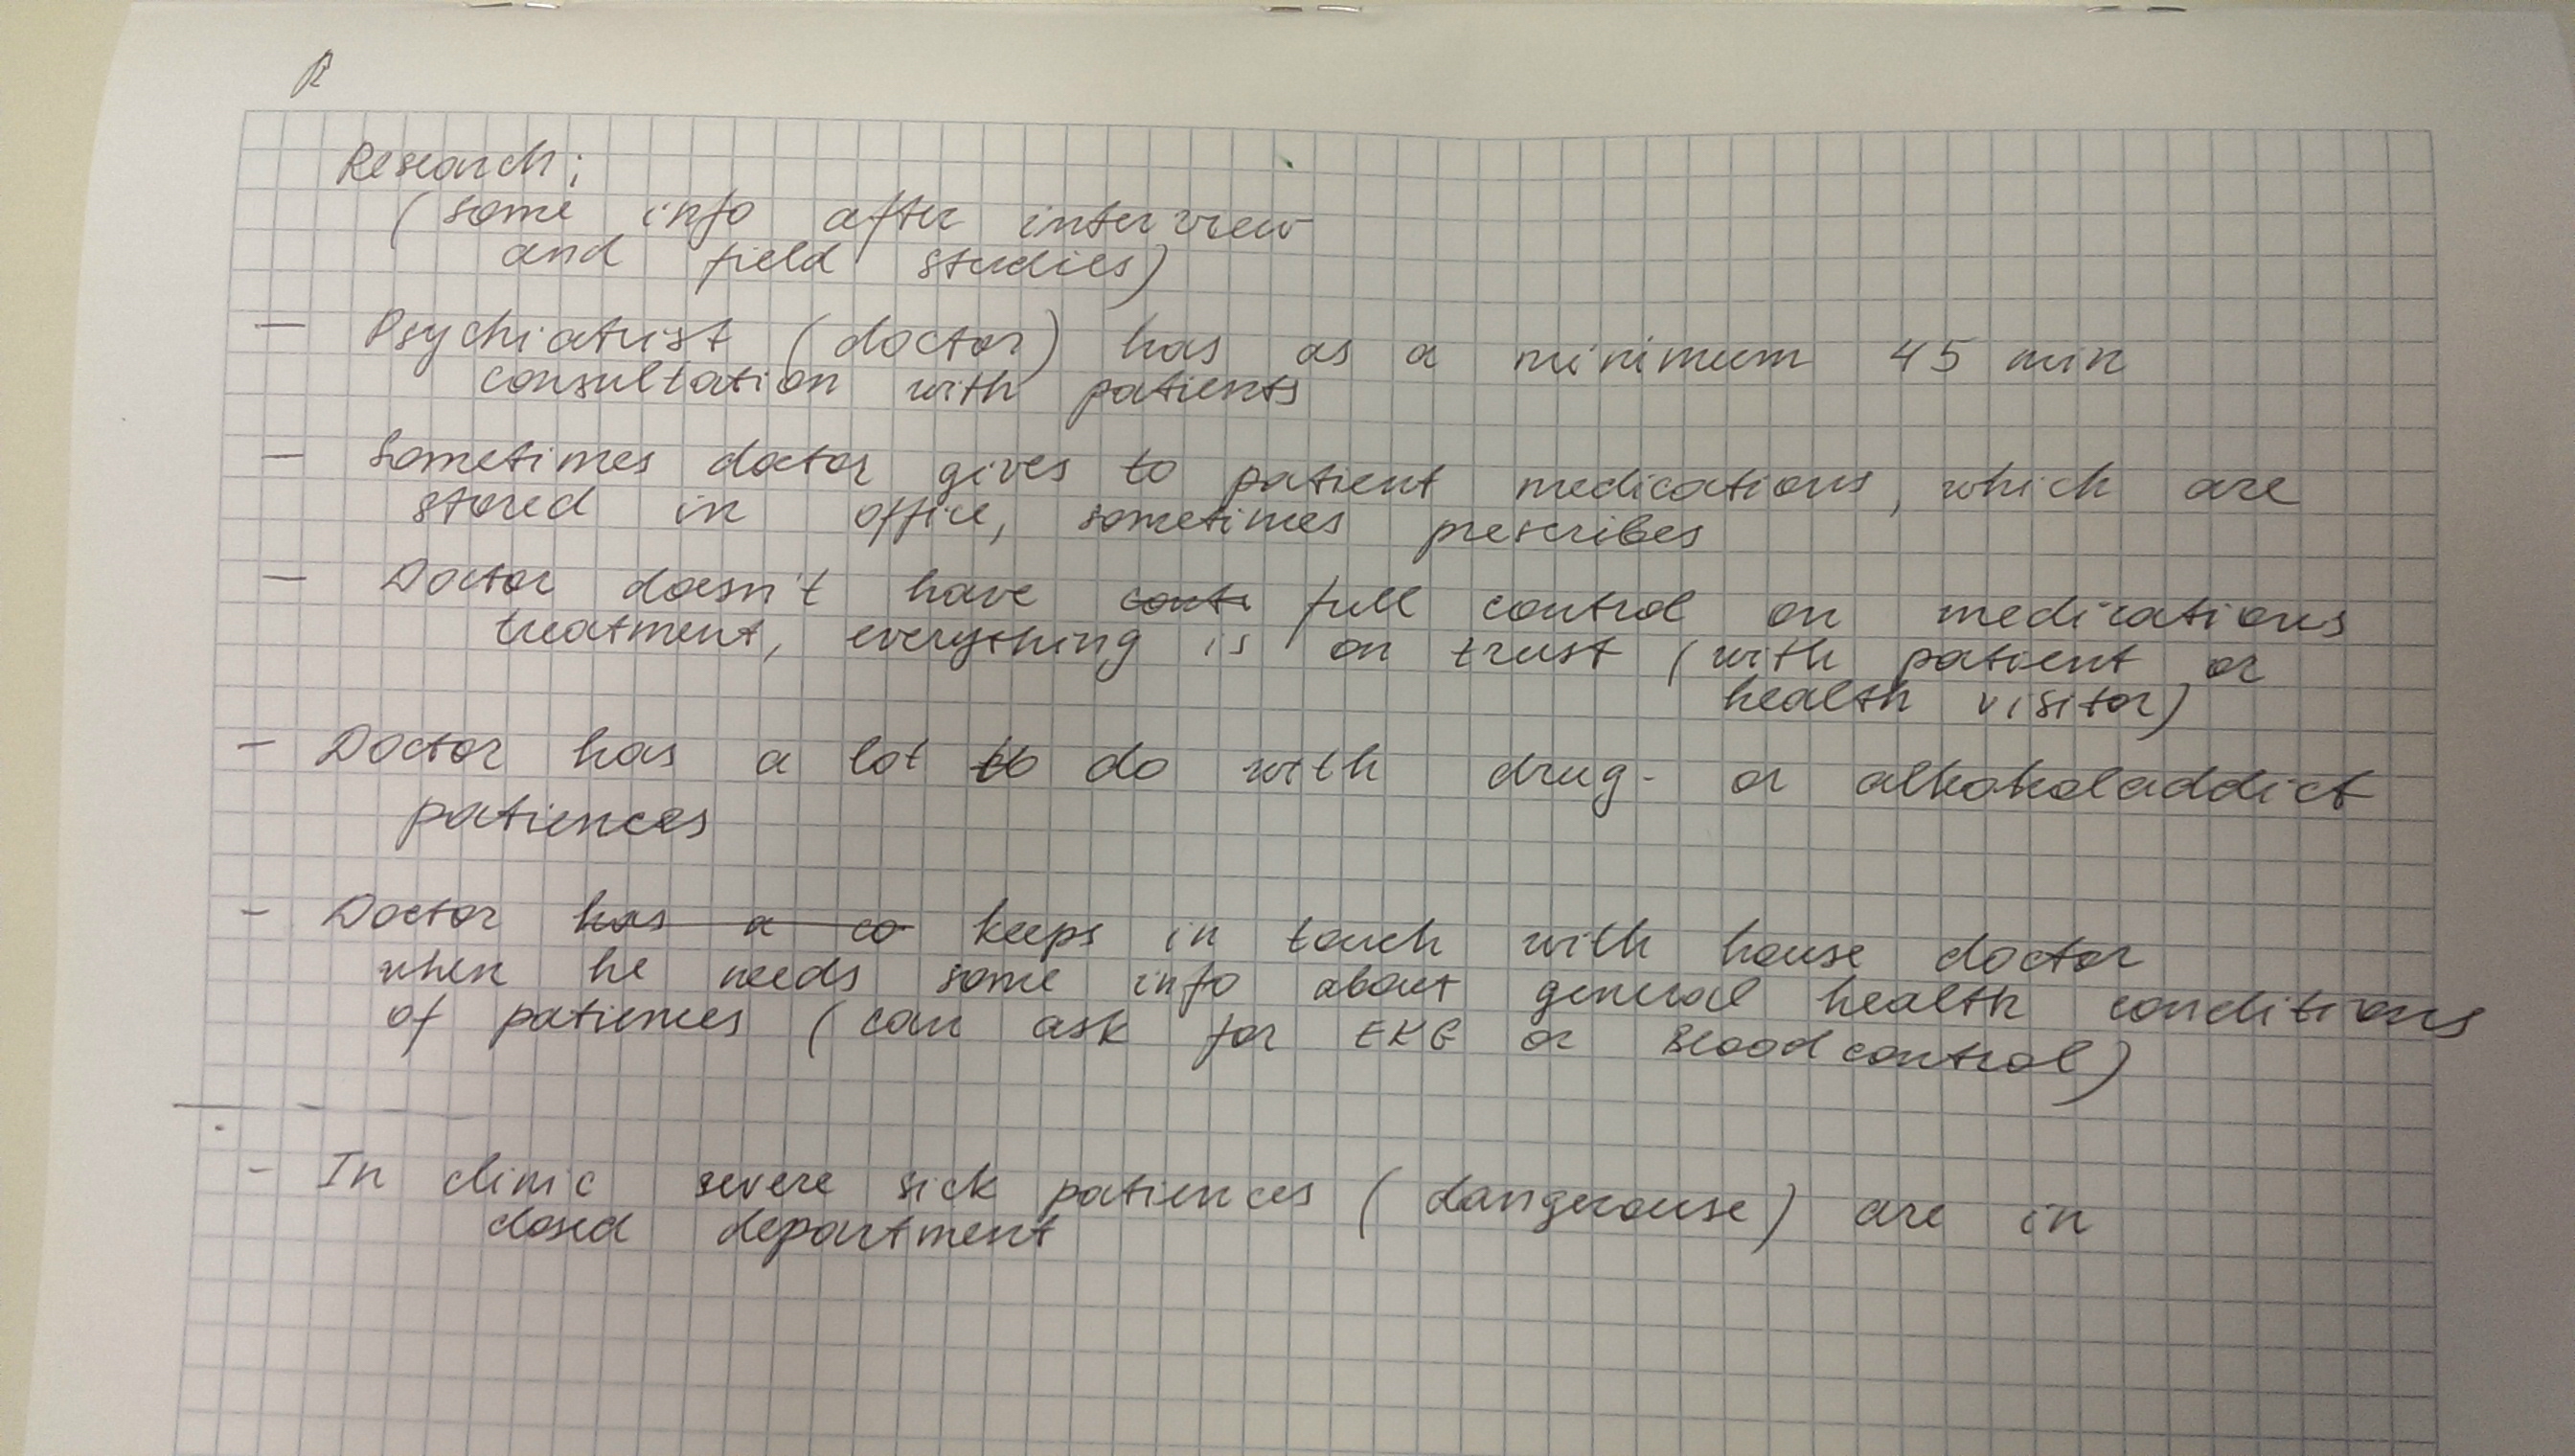 R
Research:
(some info after interview
and field studies)
— Psychiatrist (doctor) has as a minimum 45 min
consultation with patients
— Sometimes doctor gives to patient medications, which are
stored in office, sometimes prescribes
— Doctor doesn't have cont full control on medications
treatment, everything is on trust (with patient or
health visitor)
- Doctor has a lot to do with drug- or alkoholaddict
patiences
- Doctor has a co keeps in touch with house doctor
when he needs some info about general health conditions
of patiences (can ask for EKG or Bloodcontrol)
- In clinic severe sick patiences (dangerouse) are in
closed department